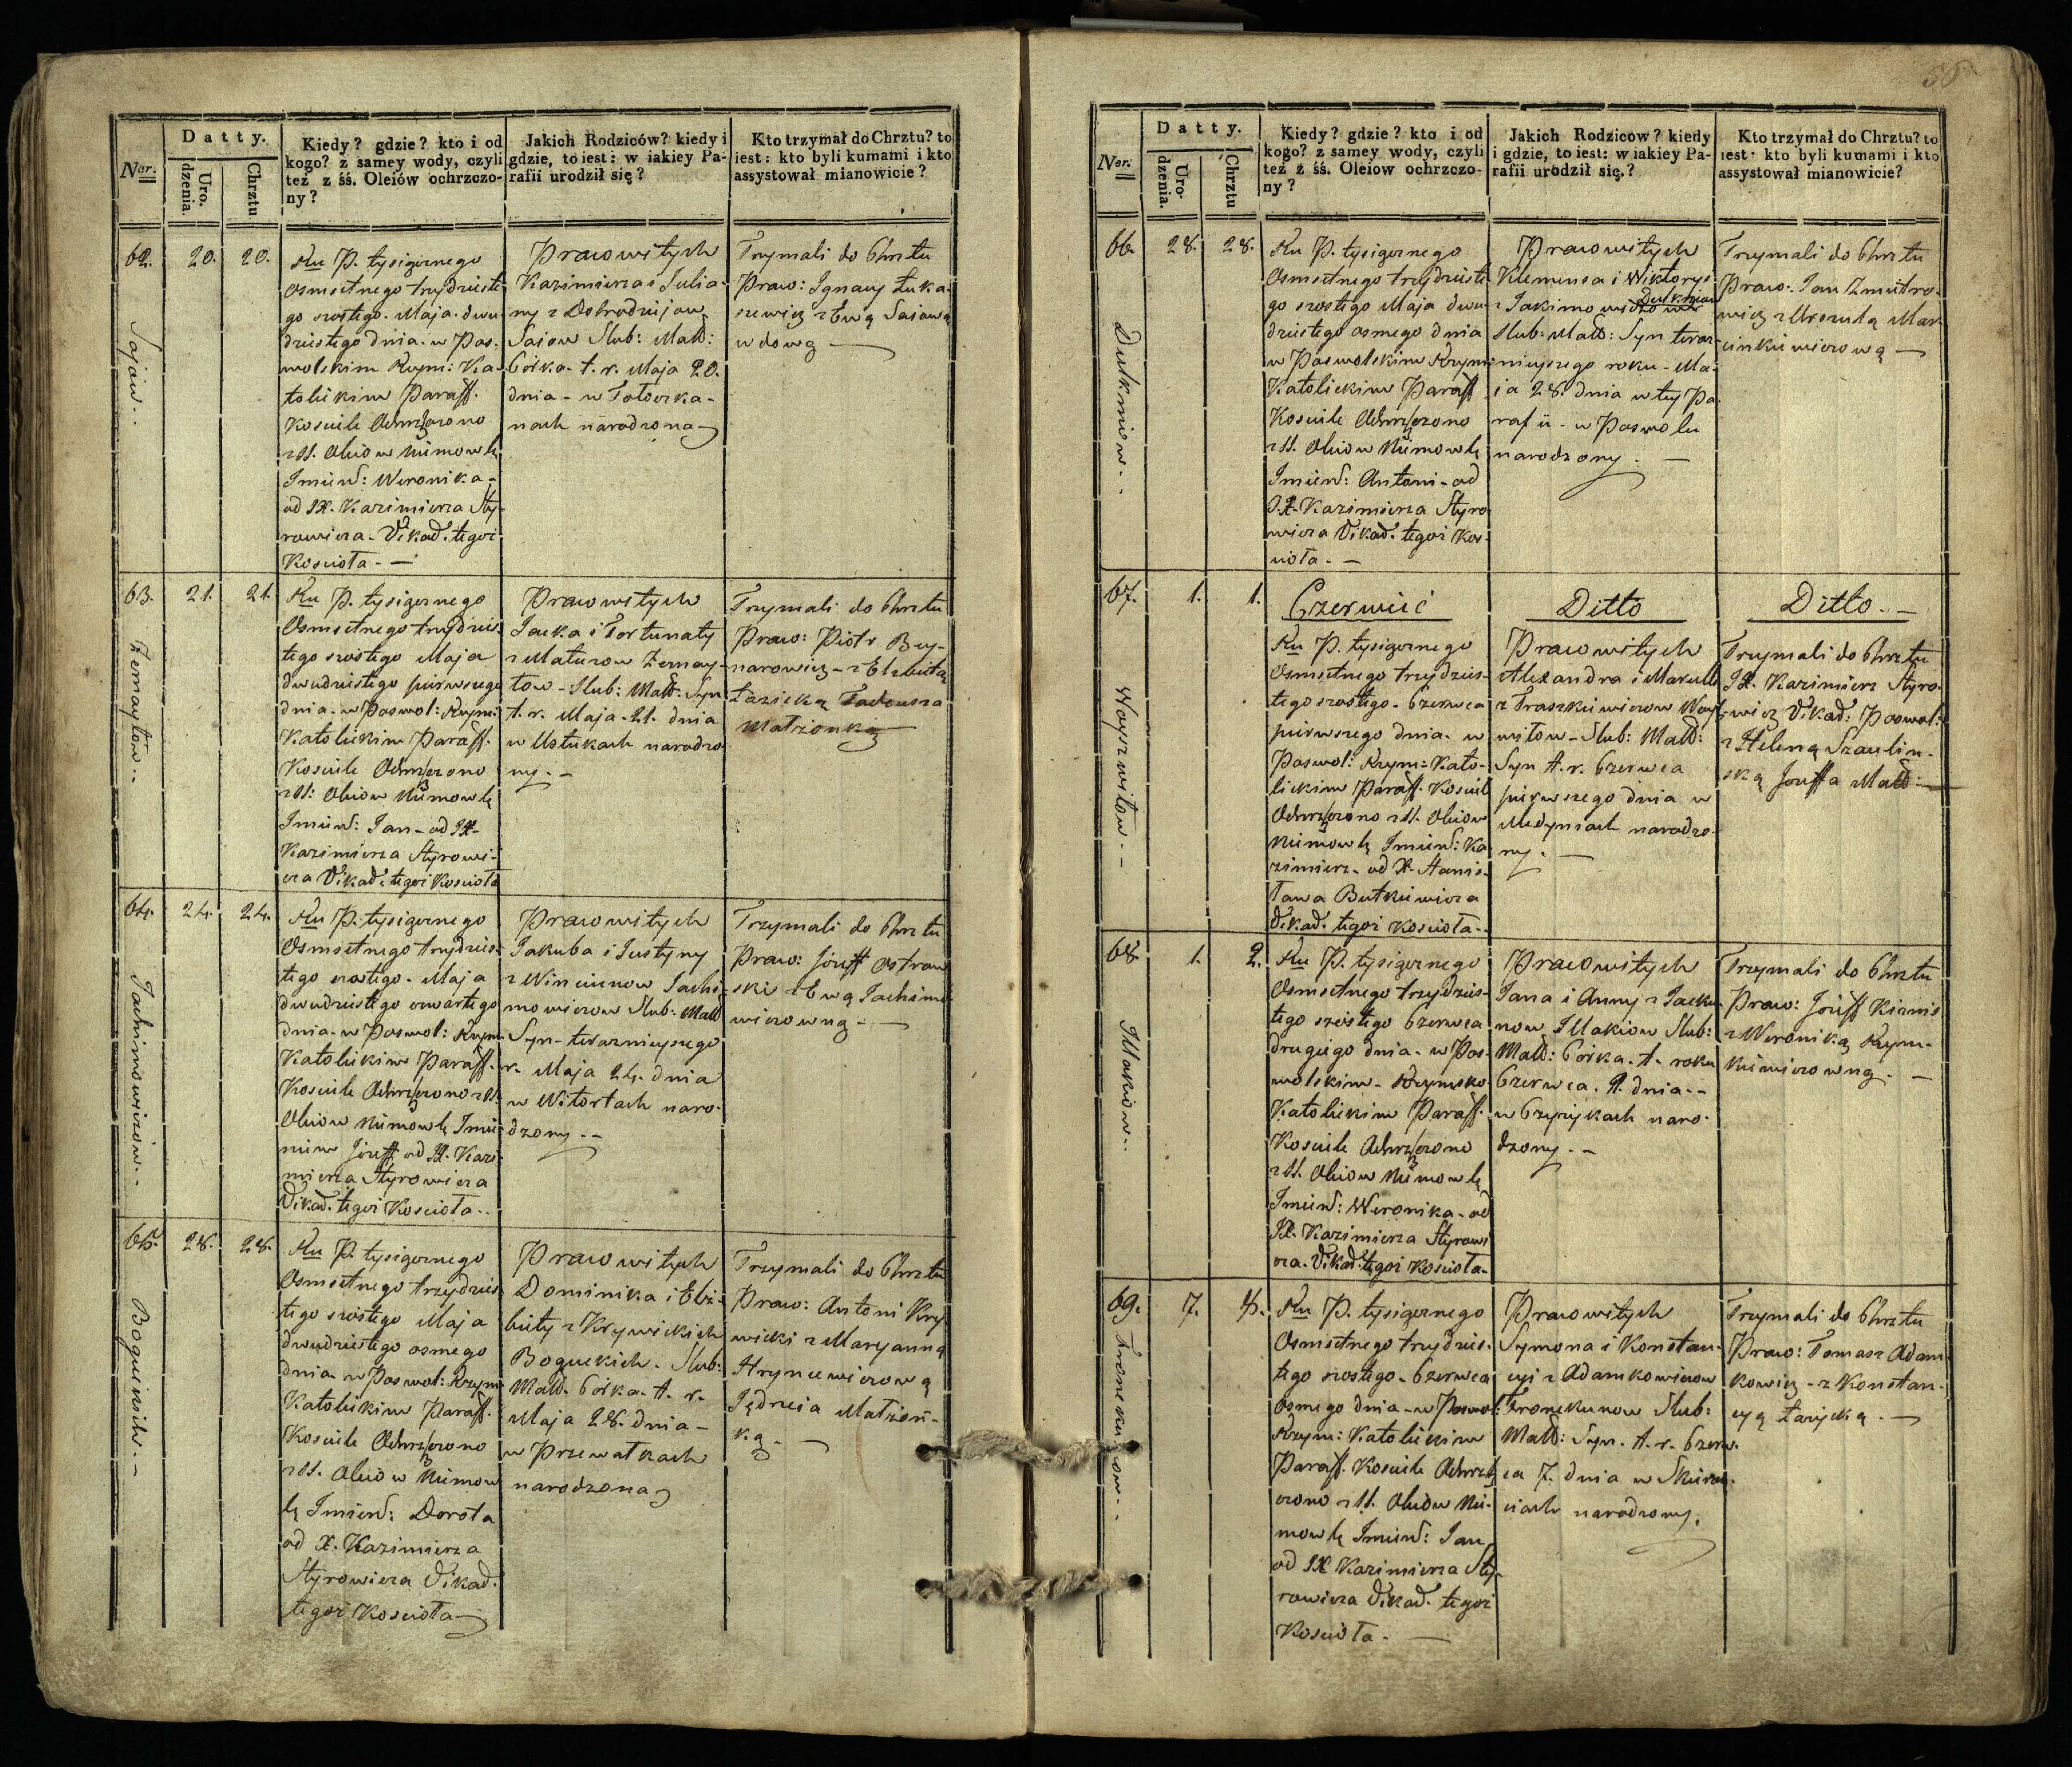 Ner.
Datty.
Uro-
dzenia.
Chrztu
Kiedy? gdzie? kto i od
kogo? z samey wody, czyli
też z śś. Oleiów ochrzczo-
ny?
Jakich Rodziców? kiedy i
gdzie, to iest: w iakiey Pa-
rafii urodził się?
Kto trzymał do Chrztu? to
iest: kto byli kumami i kto
assystował mianowicie?
62.
20.
20.
Sajów.
Ru P. tysiącznego
Osmsetnego trzydzieste
go szostego. Maja. dwu-
dziestego dnia. w Pos-
wolskim Rzym: Ka-
tolickim Paraff.
Kosciele Ochrzczono
z SS. Oleiow Niemowlę
Imień: Weronika -
od JX. Kazimierza Sty-
rowicza. Wikad. tegoż
Koscioła. -
Prawowitych
Kazimierza i Julia-
ny z Dobrodziejow
Saiow Slub: Małż:
Córka. t. r. Maja 20.
dnia - w Totorka-
nach narodzona
Trzymali do Chrztu
Praw: Ignacy Łuka-
szewicz z Ewą Saiową
wdową -
63.
21.
21.
Zemaytów.
Ru P. tysiącznego
Osmsetnego trzydzies-
tego szostego Maja
dwudziestego pierwszego
dnia. w Poswol: Rzym:
Katolickim Paraff.
Kosciele Ochrzczono
z SS: Oleiow Niemowlę
Imień: Jan - od JX.
Kazimierza Styrowi-
cza Wikad. tegoż Koscioła
Prawowitych
Jacka i Fortunaty
z Matuzow Zemay-
tow - Slub: Małż: Syn
t. r. Maja. 21. dnia
w Ustukach narodzo-
ny. -
Trzymali do Chrztu
Praw: Piotr Buy-
narowicz - z Elzbietą
Łazicką Tadeusza
Małżonką
64.
24.
24.
Jachimowiczów.
Ru P. tysiącznego
Osmsetnego trzydzies-
tego szostego. Maja
dwudziestego czwartego
dnia. w Poswol: Rzym
Katolickim Paraff.
Kosciele Ochrzczono z SS.
Oleiow Niemowlę Imie-
niem Józeff od JX. Kazi-
mierza Styrowicza
Wikad. tegoż Koscioła. -
Prawowitych
Jakuba i Justyny
z Winciunow Jachi-
mowiczow Slub: Małż
Syn - teraznieyszego
r. Maja 24. dnia
w Witortach naro-
dzony. -
Trzymali do Chrztu
Praw: Józeff Ostrow
ski z Ewą Jachimo-
wiczowną - -
65.
28.
28.
Boguckich.
Ru P. tysiącznego
Osmsetnego trzydzies-
tego szostego Maja
dwudziestego osmego
dnia. w Poswol: Rzym
Katolickim Paraff.
Kosciele Ochrzczono
z SS. Oleiow Niemow
lę Imień: Dorota
od X. Kazimierza
Styrowicza Wikad.
tegoż Koscioła
Prawowitych
Dominika i Elż-
biety z Krywickich
Boguckich. Slub:
Małż. Córka. t. r.
Maja 28. dnia -
w Przewałkach
narodzona
Trzymali do Chrztu
Praw: Antoni Kry
wicki z Maryanną
Hryncewiczową
Jędrzeia Małżon-
ką. -
Ner.
Datty.
Uro-
dzenia.
Chrztu
Kiedy? gdzie? kto i od
kogo? z samey wody, czyli
też z śś. Oleiow ochrzczo-
ny?
Jakich Rodziców? kiedy
i gdzie, to iest: w iakiey Pa-
rafii urodził się?
Kto trzymał do Chrztu? to
iest: kto byli kumami i kto
assystował mianowicie?
66.
28.
28.
Dulkniow.
Ru P. tysiącznego
Osmsetnego trzydzieste
go szostego Maja dwu-
dziestego osmego dnia
w Poswolskim Rzym:
Katolickim Paraff
Kosciele Ochrzczono
z SS. Oleiow Niemowlę
Imień: Antoni - od
JX. Kazimierza Styro
wicza Wikad. tegoż Kos-
cioła. -
Prawowitych
Klemensa i Wiktoryi
z Jakimowiczow Dulkniow
Slub: Małż: Syn teraz-
nieyszego roku - Ma-
ia 28. dnia w tey Pa
rafii. w Poswolu
narodzony. -
Trzymali do Chrztu
Praw: Jan Zmitro-
wicz z Urszulą Mar-
cinkiewiczową -
67.
1.
1.
Woyszwiłow.
Czerwieć
Ditto
Ditto. -
Ru P. tysiącznego
Osmsetnego trzydzies-
tego szostego. Czerwca
pierwszego dnia. w
Poswol: Rzym: Kato-
lickim Paraff. Kosciel
Ochrzczono z SS. Oleiow
Niemowlę Imień: Ka
zimierz. od X. Stanis-
ława Butkiewicza
Wikad. tegoż Koscioła. -
Prawowitych
Alexandra i Maryell
z Fraszkiewiczow Woysz
wiłow - Slub: Małż:
Syn t. r. Czerwca
pierwszego dnia w
Medyniach narodzo-
ny. -
Trzymali do Chrztu
JX. Kazimierz Styro-
wicz Wikad: Poswol:
z Heleną Szaulin-
ską Józeffa Małż: -
68
1.
2.
Illakiow.
Ru P. tysiącznego
Osmsetnego trzydzies-
tego szóstego Czerwca
drugiego dnia. w Pos-
wolskim. Rzymsko
Katolickim Paraff.
Kosciele Ochrzczono
z SS. Oleiow Niemowlę
Imień: Weronika. od
JX. Kazimierza Styrowi
cza. Wikad. tegoż Koscioła.
Prawowitych
Jana i Anny z Jacku
now Illakiow Slub:
Małż: Córka. t. roku
Czerwca. 1. dnia. -
w Czypiykach naro-
dzony. -
Trzymali do Chrztu
Praw: Józeff Kirmis
z Weroniką Rym-
kiewiczowną. -
69.
7.
8.
Froneckunow.
Ru P. tysiącznego
Osmsetnego trzydzies-
tego szostego. Czerwca
Osmego dnia - w Poswol:
Rzym: Katolickim
Paraff. Kosciele Ochrz
czono z SS. Oleiow Nie-
mowlę Imień: Jan
od JX Kazimierza Sty-
rowicza Wikad. tegoż
Koscioła. -
Prawowitych
Symona i Konstan-
cyi z Adamkowiczow
Froneckunow Slub:
Małż: Syn. t. r. Czerw-
ca 7. dnia w
ciach narodzony.
Trzymali do Chrztu
Praw: Tomasz Adam
kowicz - z Konstan-
cyą Łazycką. -